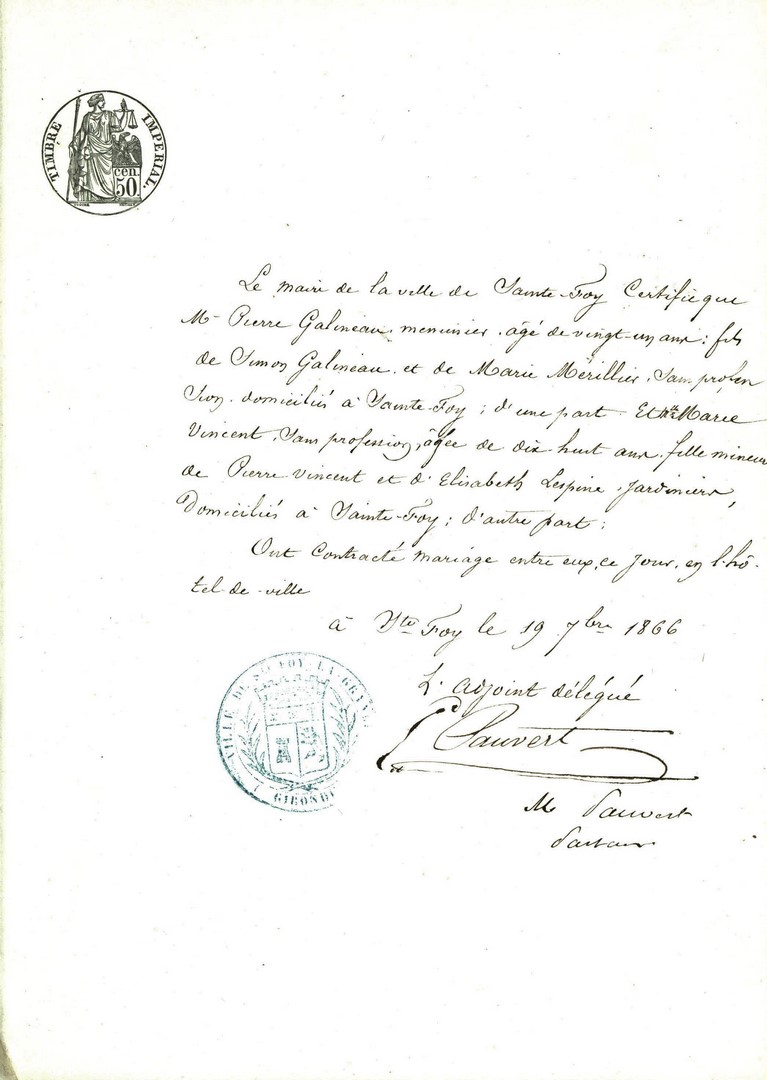 TIMBRE IMPERIAL.
cen.
50.
Le maire de la ville de Sainte-Foy Certifie que
Mr Pierre Galineau, menuisier, âgé de vingt-un ans; fils
de Simon Galineau, et de Marie Mérillier, Sans profes
sion, domiciliés à Sainte-Foy; d'une part. Et Marie
Vincent, Sans profession, âgée de dix huit ans, fille mineure
de Pierre Vincent et d'Elisabeth Lespine, Jardiniers,
Domiciliés à Sainte-Foy; d'autre part;
Ont Contracté mariage entre eux, ce Jour, en l'hô-
tel-de-ville
à Ste Foy le 19 7bre 1866
L'adjoint délégué
Pauvert
VILLE DE STE FOY LA GRANDE
GIRONDE
M Pauvert
Pasteur